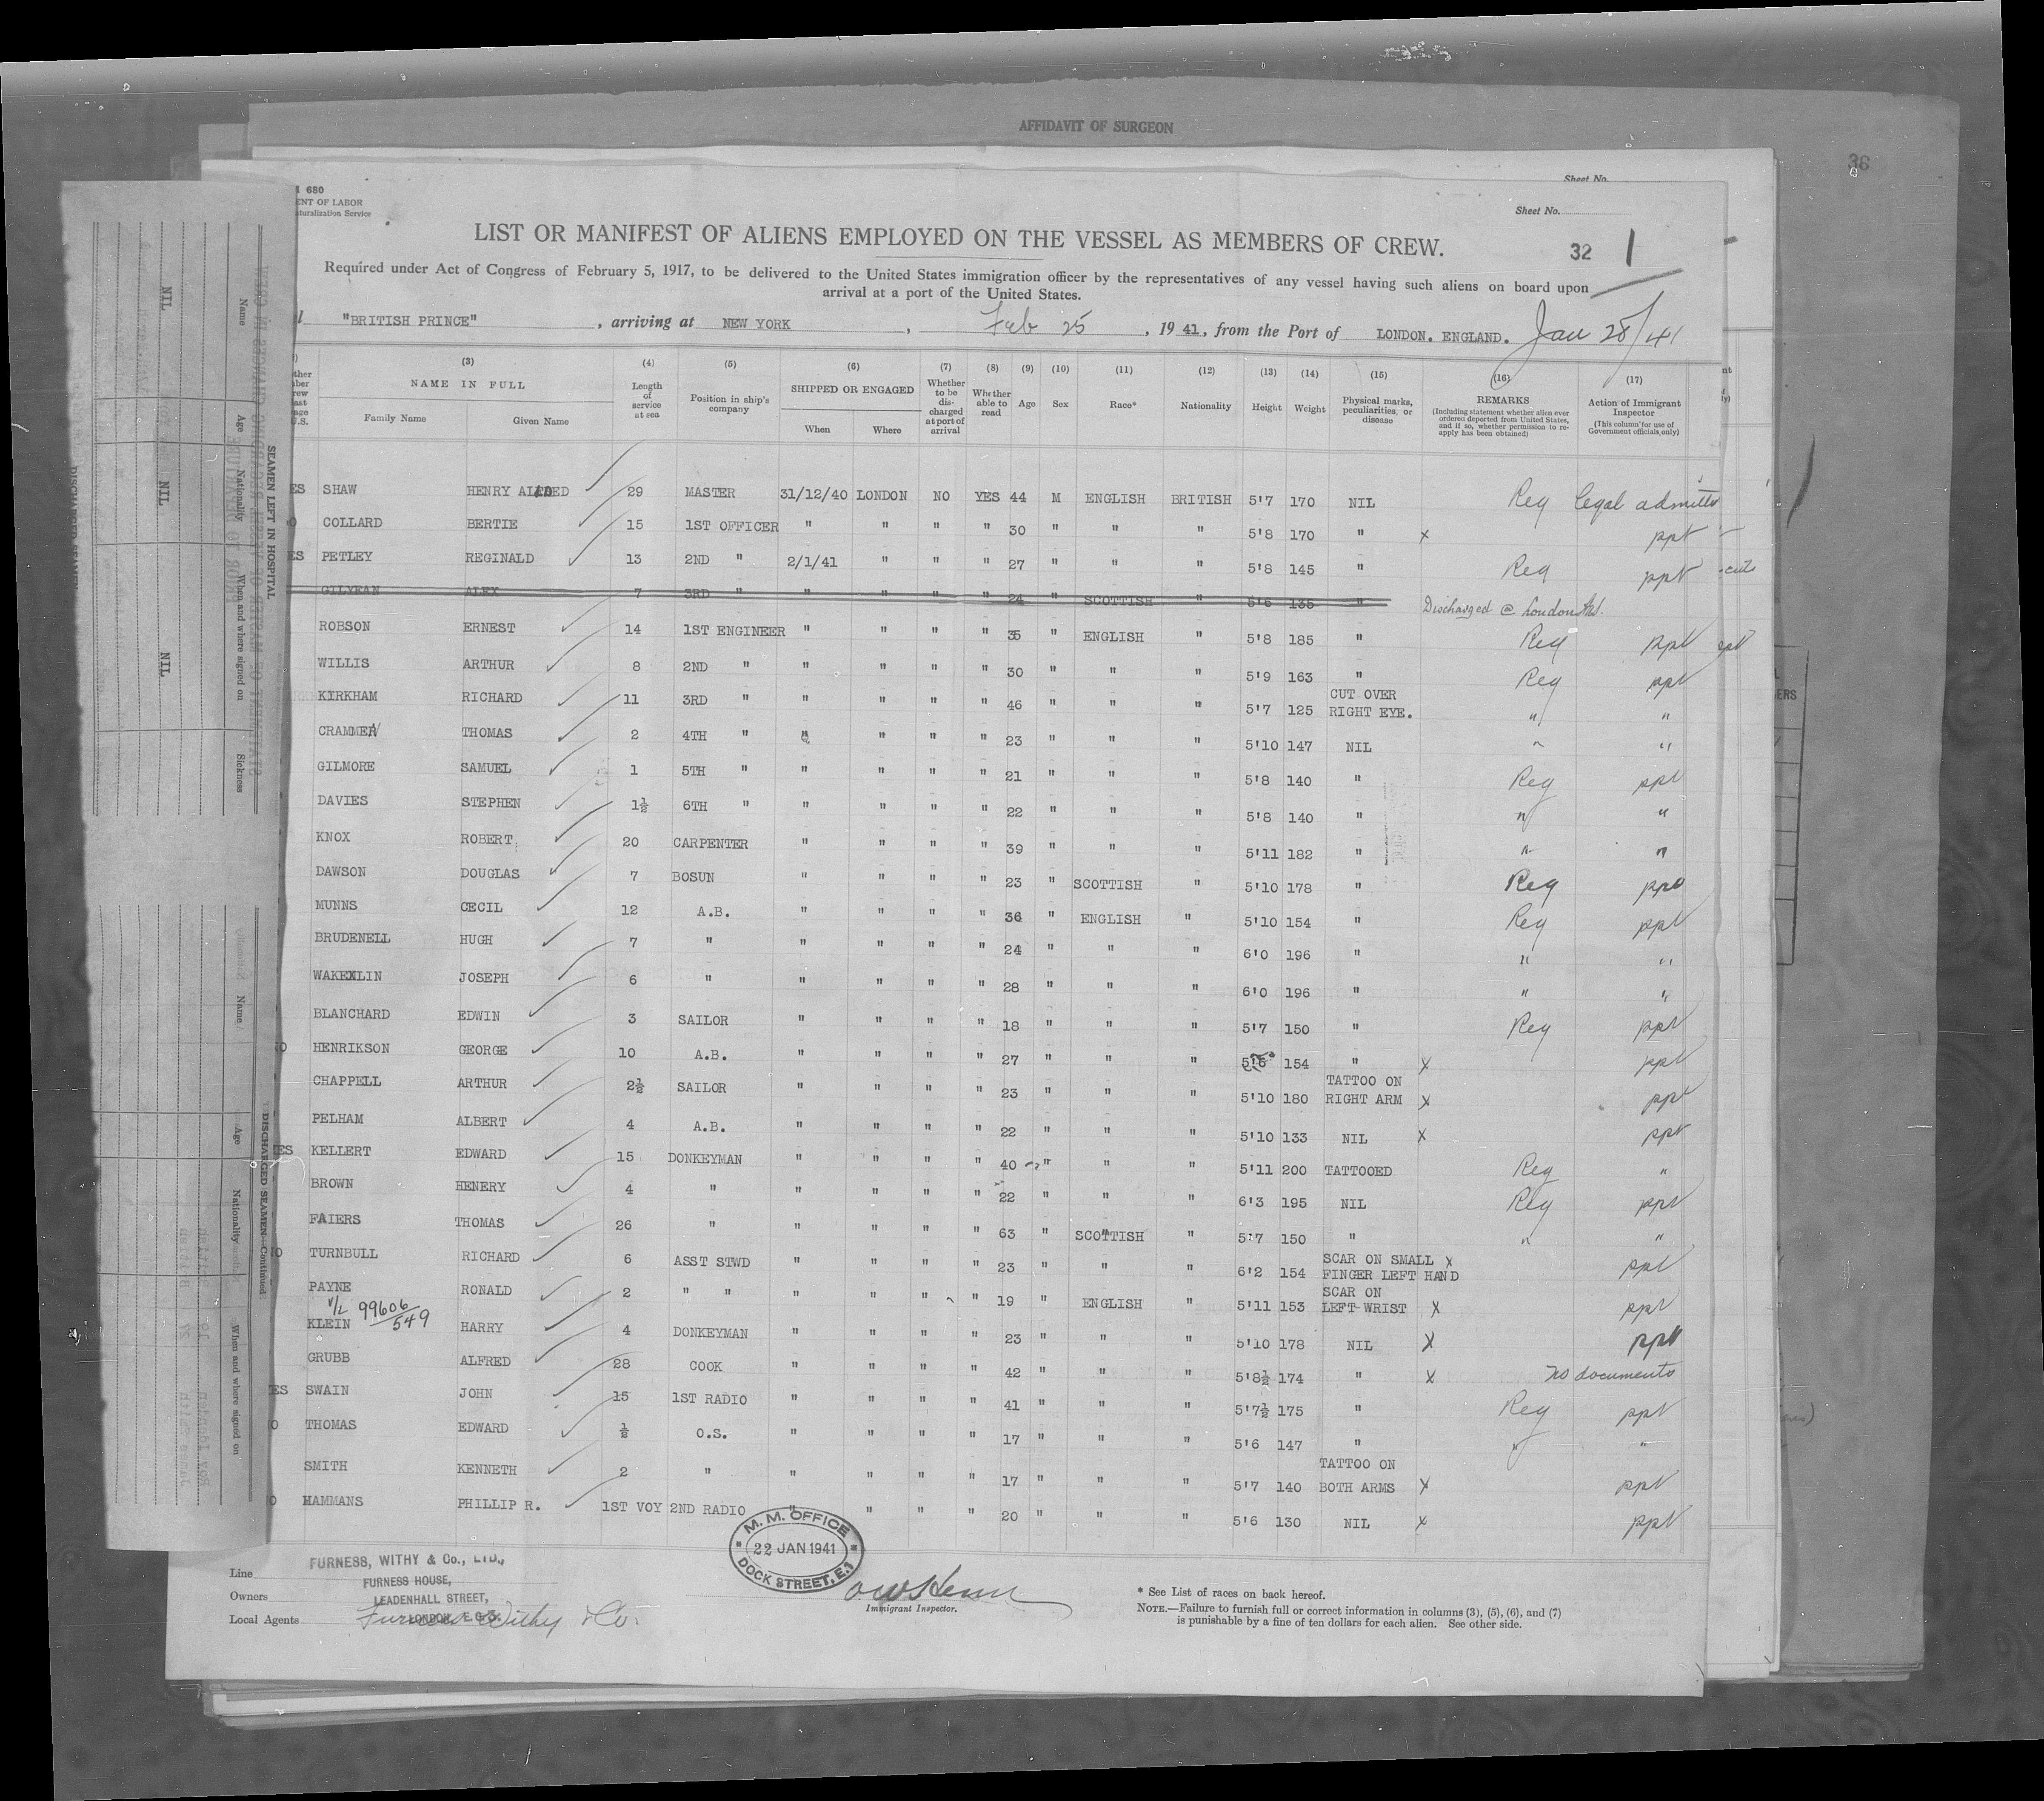 AFFIDAVIT OF SURGEON
38
Sheet No.
680
ENT OF LABOR
Naturalization Service
Sheet No.
LIST OR MANIFEST OF ALIENS EMPLOYED ON THE VESSEL AS MEMBERS OF CREW.
32 1
Required under Act of Congress of February 5, 1917, to be delivered to the United States immigration officer by the representatives of any vessel having such aliens on board upon
arrival at a port of the United States.
"BRITISH PRINCE" , arriving at NEW YORK , Feb 25 , 19 41, from the Port of LONDON. ENGLAND. Jan 28/41
(3) (4) (5) (6) (7) (8) (9) (10) (11) (12) (13) (14) (15) (16) (17)
NAME IN FULL Length of service at sea Position in ship's company SHIPPED OR ENGAGED Whether to be discharged at port of arrival Whether able to read Age Sex Race* Nationality Height Weight Physical marks, peculiarities, or disease REMARKS (Including statement whether alien ever ordered deported from United States, and if so, whether permission to reapply has been obtained) Action of Immigrant Inspector (This column for use of Government officials only)
Family Name Given Name When Where
ES SHAW HENRY 29 MASTER 31/12/40 LONDON NO YES 44 M ENGLISH BRITISH 5'7 170 NIL Reg legal admitted
COLLARD BERTIE 15 1ST OFFICER " " " " 30 " " " 5'8 170 " x ppt
ES PETLEY REGINALD 13 2ND " 2/1/41 " " " 27 " " " 5'8 145 " Reg ppt
GILYEAN ALEX 7 3RD " " " " " 24 " SCOTTISH " 5'6 135 " Discharged @ London
ROBSON ERNEST 14 1ST ENGINEER " " " " 35 " ENGLISH " 5'8 185 " Reg ppt
WILLIS ARTHUR 8 2ND " " " " " 30 " " " 5'9 163 " Reg ppt
KIRKHAM RICHARD 11 3RD " " " " " 46 " " " 5'7 125 CUT OVER RIGHT EYE. " "
CRAMMER THOMAS 2 4TH " " " " " 23 " " " 5'10 147 NIL " "
GILMORE SAMUEL 1 5TH " " " " " 21 " " " 5'8 140 " Reg ppt
DAVIES STEPHEN 1½ 6TH " " " " " 22 " " " 5'8 140 " " "
KNOX ROBERT 20 CARPENTER " " " " 39 " " " 5'11 182 " " "
DAWSON DOUGLAS 7 BOSUN " " " " 23 " SCOTTISH " 5'10 178 " Reg ppt
MUNNS CECIL 12 A.B. " " " " 36 " ENGLISH " 5'10 154 " Reg ppt
BRUDENELL HUGH 7 " " " " " 24 " " " 6'0 196 " " "
WAKENLIN JOSEPH 6 " " " " " 28 " " " 6'0 196 " " "
BLANCHARD EDWIN 3 SAILOR " " " " 18 " " " 5'7 150 " Reg ppt
O HENRIKSON GEORGE 10 A.B. " " " " 27 " " " 154 " x ppt
CHAPPELL ARTHUR 2½ SAILOR " " " " 23 " " " 5'10 180 TATTOO ON RIGHT ARM x ppt
PELHAM ALBERT 4 A.B. " " " " 22 " " " 5'10 133 NIL x ppt
ES KELLERT EDWARD 15 DONKEYMAN " " " " 40 " " " 5'11 200 TATTOOED Reg "
BROWN HENERY 4 " " " " " 22 " " " 6'3 195 NIL Reg ppt
FAIERS THOMAS 26 " " " " " 63 " SCOTTISH " 5'7 150 " " "
O TURNBULL RICHARD 6 ASST STWD " " " " 23 " " " 6'2 154 SCAR ON SMALL FINGER LEFT HAND x ppt
PAYNE RONALD 2 " " " " " " 19 " ENGLISH " 5'11 153 SCAR ON LEFT WRIST x ppt
V/L 99606/549
KLEIN HARRY 4 DONKEYMAN " " " " 23 " " " 5'10 178 NIL x ppt
GRUBB ALFRED 28 COOK " " " " 42 " " " 5'8½ 174 " x no documents
ES SWAIN JOHN 15 1ST RADIO " " " " 41 " " " 5'7½ 175 " Reg ppt
O THOMAS EDWARD ½ O.S. " " " " 17 " " " 5'6 147 " " "
SMITH KENNETH 2 " " " " " 17 " " " 5'7 140 TATTOO ON BOTH ARMS x ppt
O HAMMANS PHILLIP R. 1ST VOY 2ND RADIO " " " " 20 " " " 5'6 130 NIL x ppt
M. M. OFFICE
22 JAN 1941
DOCK STREET, E.1
Line FURNESS, WITHY & Co., LTD.,
FURNESS HOUSE,
Owners LEADENHALL STREET,
LONDON, E.C.3.
Local Agents Furness Withy & Co.
Immigrant Inspector.
* See List of races on back hereof.
NOTE.—Failure to furnish full or correct information in columns (3), (5), (6), and (7)
is punishable by a fine of ten dollars for each alien. See other side.
SEAMEN LEFT IN HOSPITAL
Name Age Nationality When and where signed on Sickness
NIL NIL NIL
DISCHARGED SEAMEN—Continued.
Name Age Nationality When and where signed on
DISCHARGED SEAMEN